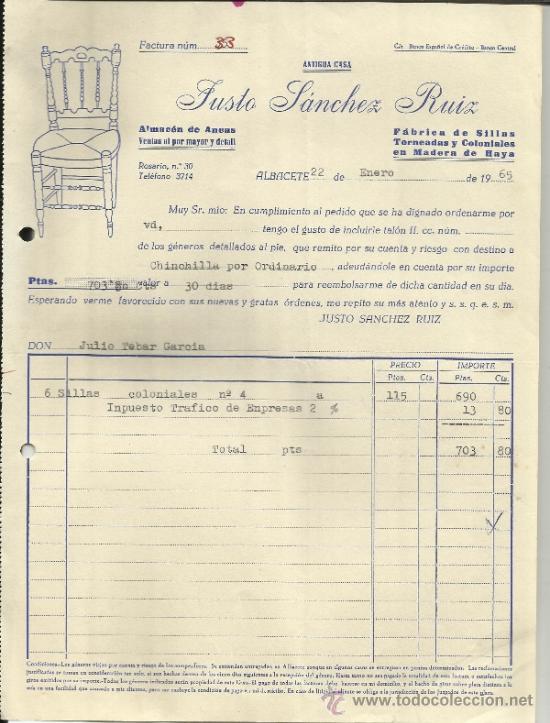 Factura núm. 33
C/c. Banco Español de Crédito - Banco Central
ANTIGUA CASA
Justo Sánchez Ruiz
Almacén de Aneas
Ventas al por mayor y detall
Fábrica de Sillas
Torneadas y Coloniales
en Madera de Haya
Rosario, n.º 30
Teléfono 3714
ALBACETE 22 de Enero de 1965
Muy Sr. mio: En cumplimiento al pedido que se ha dignado ordenarme por
vd, tengo el gusto de incluirle talón ff. cc. núm.
de los géneros detallados al pie, que remito por su cuenta y riesgo con destino a
Chinchilla por Ordinario, adeudándole en cuenta por su importe
Ptas. 703'80 cts valor a 30 dias para reembolsarme de dicha cantidad en su día.
Esperando verme favorecido con sus nuevas y gratas órdenes, me repito su más atento y s. s. q. e. s. m.
JUSTO SANCHEZ RUIZ
DON Julio Tebar Garcia
PRECIO IMPORTE
Ptas. Cts. Ptas. Cts.
6 Sillas coloniales nº 4 a 115 690
Inpuesto Trafico de Empresas 2 % 13 80
Total pts 703 80
Condiciones.-Los géneros viajan por cuenta y riesgo de los compradores. Se entienden entregados en Albacete aunque en algunos casos se entreguen en puntos determinados. Las reclamaciones
todocoleccion.net